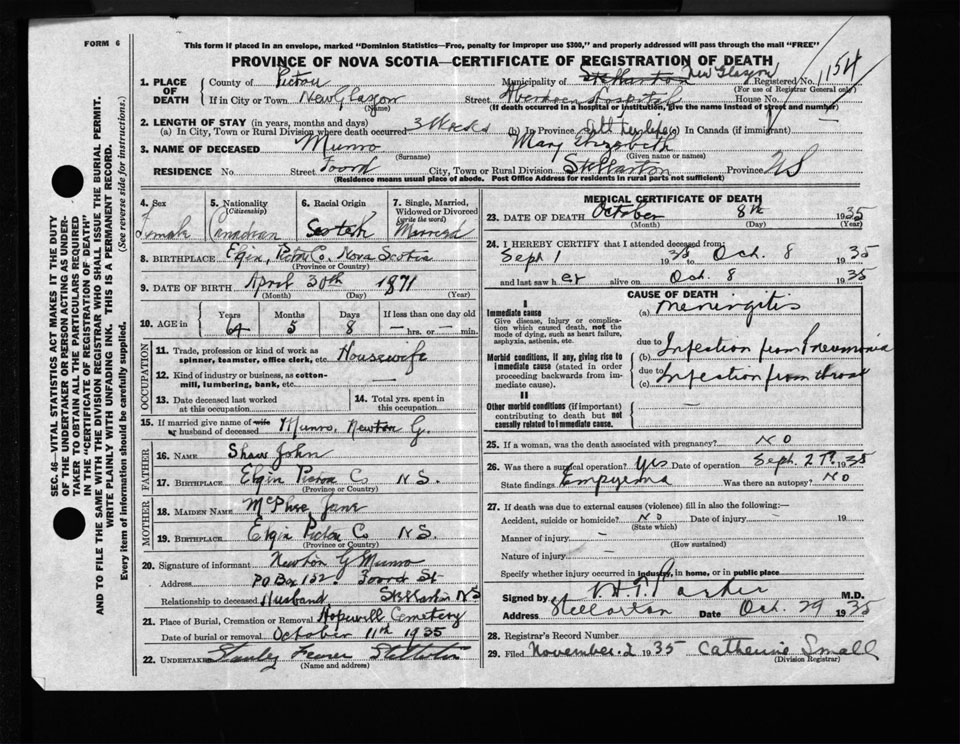 FORM 6
This form if placed in an envelope, marked "Dominion Statistics—Free, penalty for improper use $300," and properly addressed will pass through the mail "FREE"
PROVINCE OF NOVA SCOTIA—CERTIFICATE OF REGISTRATION OF DEATH
1. PLACE OF DEATH County of Pictou Municipality of Stellarton New Glasgow Registered No. 1154
(For use of Registrar General only)
If in City or Town New Glasgow Street Aberdeen Hospital House No.
(Name) (If death occurred in a hospital or institution, give the name instead of street and number)
2. LENGTH OF STAY (in years, months and days)
(a) In City, Town or Rural Division where death occurred 3 Weeks (b) In Province (c) In Canada (if immigrant)
3. NAME OF DECEASED Munro Mary Elizabeth
(Surname) (Given name or names)
RESIDENCE No. Street Foord City, Town or Rural Division Stellarton Province NS
(Residence means usual place of abode. Post Office Address for residents in rural parts not sufficient)
SEC. 46—VITAL STATISTICS ACT MAKES IT THE DUTY
OF THE UNDERTAKER OR PERSON ACTING AS UNDER-
TAKER TO OBTAIN ALL THE PARTICULARS REQUIRED
IN THE "CERTIFICATE OF REGISTRATION OF DEATH"
AND TO FILE THE SAME WITH THE DIVISION REGISTRAR WHO SHALL ISSUE THE BURIAL PERMIT.
WRITE PLAINLY WITH UNFADING INK. THIS IS A PERMANENT RECORD.
Every item of information should be carefully supplied. (See reverse side for instructions.)
4. Sex 5. Nationality (Citizenship) 6. Racial Origin 7. Single, Married, Widowed or Divorced (write the word)
Female Canadian Scotch Married
8. BIRTHPLACE Elgin, Pictou Co. Nova Scotia
(Province or Country)
9. DATE OF BIRTH April 30th 1871
(Month) (Day) (Year)
10. AGE in Years Months Days If less than one day old
64 5 8 — hrs. or — min.
OCCUPATION
11. Trade, profession or kind of work as spinner, teamster, office clerk, etc. Housewife
12. Kind of industry or business, as cotton-mill, lumbering, bank, etc. —
13. Date deceased last worked at this occupation
14. Total yrs. spent in this occupation
15. If married give name of wife or husband of deceased Munro, Newton G.
FATHER
16. Name Shaw John
17. Birthplace Elgin Pictou Co N.S.
(Province or Country)
MOTHER
18. Maiden Name McPhee Jane
19. Birthplace Elgin Pictou Co NS
(Province or Country)
20. Signature of informant Newton G Munro
Address P.O. Box 152. Foord St
Relationship to deceased Husband Stellarton NS
21. Place of Burial, Cremation or Removal Hopewell Cemetery
Date of burial or removal October 11th 1935
22. Undertaker Stanley Stellarton
(Name and address)
MEDICAL CERTIFICATE OF DEATH
23. DATE OF DEATH October 8th 1935
(Month) (Day) (Year)
24. I HEREBY CERTIFY that I attended deceased from:
Sept 1 1935 to Oct. 8 1935
and last saw her alive on Oct. 8 1935
CAUSE OF DEATH
I
Immediate cause (a) Meningitis
Give disease, injury or complication which caused death, not the mode of dying, such as heart failure, asphyxia, asthenia, etc.
due to
Morbid conditions, if any, giving rise to immediate cause (stated in order proceeding backwards from immediate cause). (b) Infection from Pneumonia
due to
(c) Infection from throat
II
Other morbid conditions (if important) contributing to death but not causally related to immediate cause. —
25. If a woman, was the death associated with pregnancy? NO
26. Was there a surgical operation? Yes Date of operation Sept. 27 1935
State findings Empyema Was there an autopsy? NO
27. If death was due to external causes (violence) fill in also the following:—
Accident, suicide or homicide? NO Date of injury - 19
(State which)
Manner of injury -
(How sustained)
Nature of injury -
Specify whether injury occurred in industry, in home, or in public place
Signed by Parker M.D.
Address Stellarton Date Oct. 29 1935
28. Registrar's Record Number
29. Filed November. 2 1935 Catherine Small
(Division Registrar)